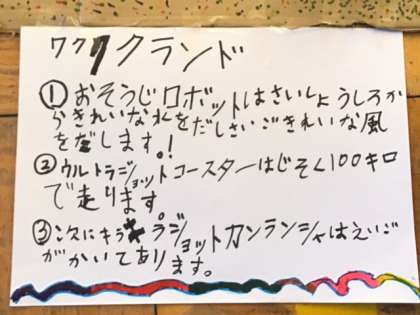 ワククランド
①おそうじロボットはさいしょうしろか
らきれいな水をだしさいごきれいな風
をだします。!
②ウルトラジョットコースターはじそく100キロ
で走ります。
③次にキラキラジョットカンランシャはえいご
がかいてあります。